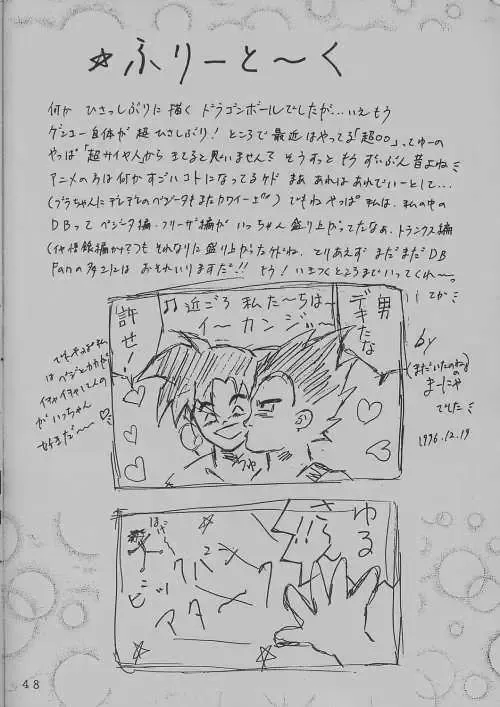 ☆ふりーと～く
何か ひさっしぶりに描く ドラゴンボールでしたが…いえもう
ゲンコー自体が超ひさしぶり! ところで最近はやってる「超○○」ってゆーの
やっぱ「超サイヤ人」から きてると思いません? そうすっと もう ずいぶん昔よね
アニメの方は何かすごいコトになってるケド まぁ あれはあれでいーとして…
(ブラちゃんにデレデレのベジータもまたカワイーが) でもね やっぱ 私は、私の中の
DBって ベジータ編・フリーザ編が いっちゃん盛り上がってたなぁ、トランクス編
それなりに盛り上がったケドね、とりあえず まだまだDB
Fanの多さには おそれいりますだ!! もう! いきつくところまでいってくれ～っ
ってか
男
デキたな
近ごろ 私た～ちは～
イ～カンジッ～
♫
許せー!
by
(まだいたのね)
まーにゃ
でした
1996.12.19
でもやっぱ私
はベジとカカが
イチャイチャしてんの
がいっちゃん
好きだ～
ゆる
さん!!
48